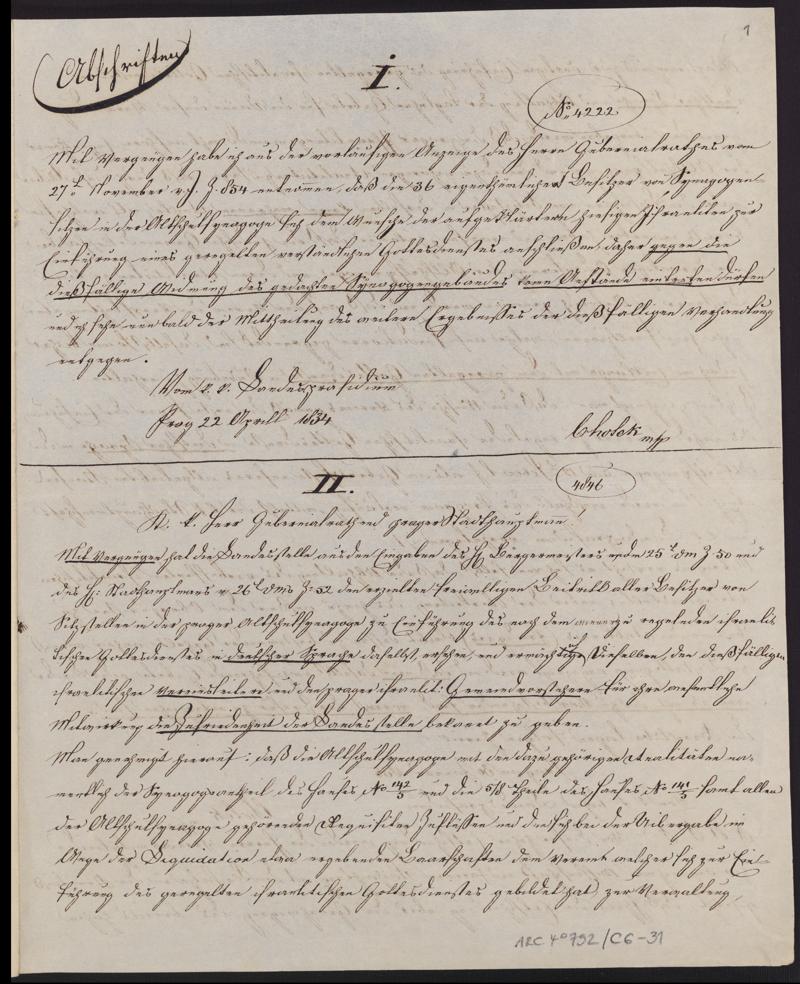 1
Abschriften
I.
No 4222
Mit Vergnügen habe ich aus der vorläufigen Anzeige des Herrn Gubernialrathes vom
27t November v. J. Z. 854 entnommen, daß die 36 eigenthümlichen Besitzer von Synagogen-
sitzen in der Altschulsynagoge sich dem Wunsche der aufgeklärtern hiesigen Israeliten zur
Einführung eines geregelten verständlichen Gottesdienstes anschließen, daher gegen die
dießfällige Widmung des gedachten Synagogengebäudes keine Anstände eintreten dürften
und ich sehe nun bald der Mittheilung des weitern Ergebnisses der dießfälligen Verhandlung
entgegen.
Vom k. k. Landespräsidium
Prag 22 April 1834
Chotek mp
II.
4846
K. k. Herr Gubernialrath und prager Stadthauptmann!
Mit Vergnügen hat die Landesstelle aus den Eingaben des H. Bürgermeisters vom 25t Z 50 und
des H: Stadthauptmans v 26t Z: 52 den erzielten freiwilligen Beitritt aller Besitzer von
Sitzstellen in der prager Altschulsynagoge zu Einführung des nach dem zu regelnden israeli-
tischen Gottesdienstes in deutscher Sprache daselbst, ersehen, und ermächtigt Dieselben, den dießfälligen
israelitischen Vereinsleitern und den prager israelit: Gemeindvorstehern für ihre
Mitwirkung die Zufriedenheit der Landesstelle bekannt zu geben.
Man genehmigt hierauf: daß die Altschulsynagoge mit den dazu gehörigen Realitäten na-
mentlich der Synagogsantheil des Hauses No 142/5 und die 5/8 Theile des Hauses No 141/5 samt allen
der Altschulsynagoge gehörenden Requisiten Zuflüssen und die sich bei der Uibergabe im
Wege der Liquidation etwa ergebenden Baarschaften dem Verein welcher sich zur Ein-
führung des geregelten israelitischen Gottesdienstes gebildet hat, zur Verwaltung,
ARC 4° 792/C6-31